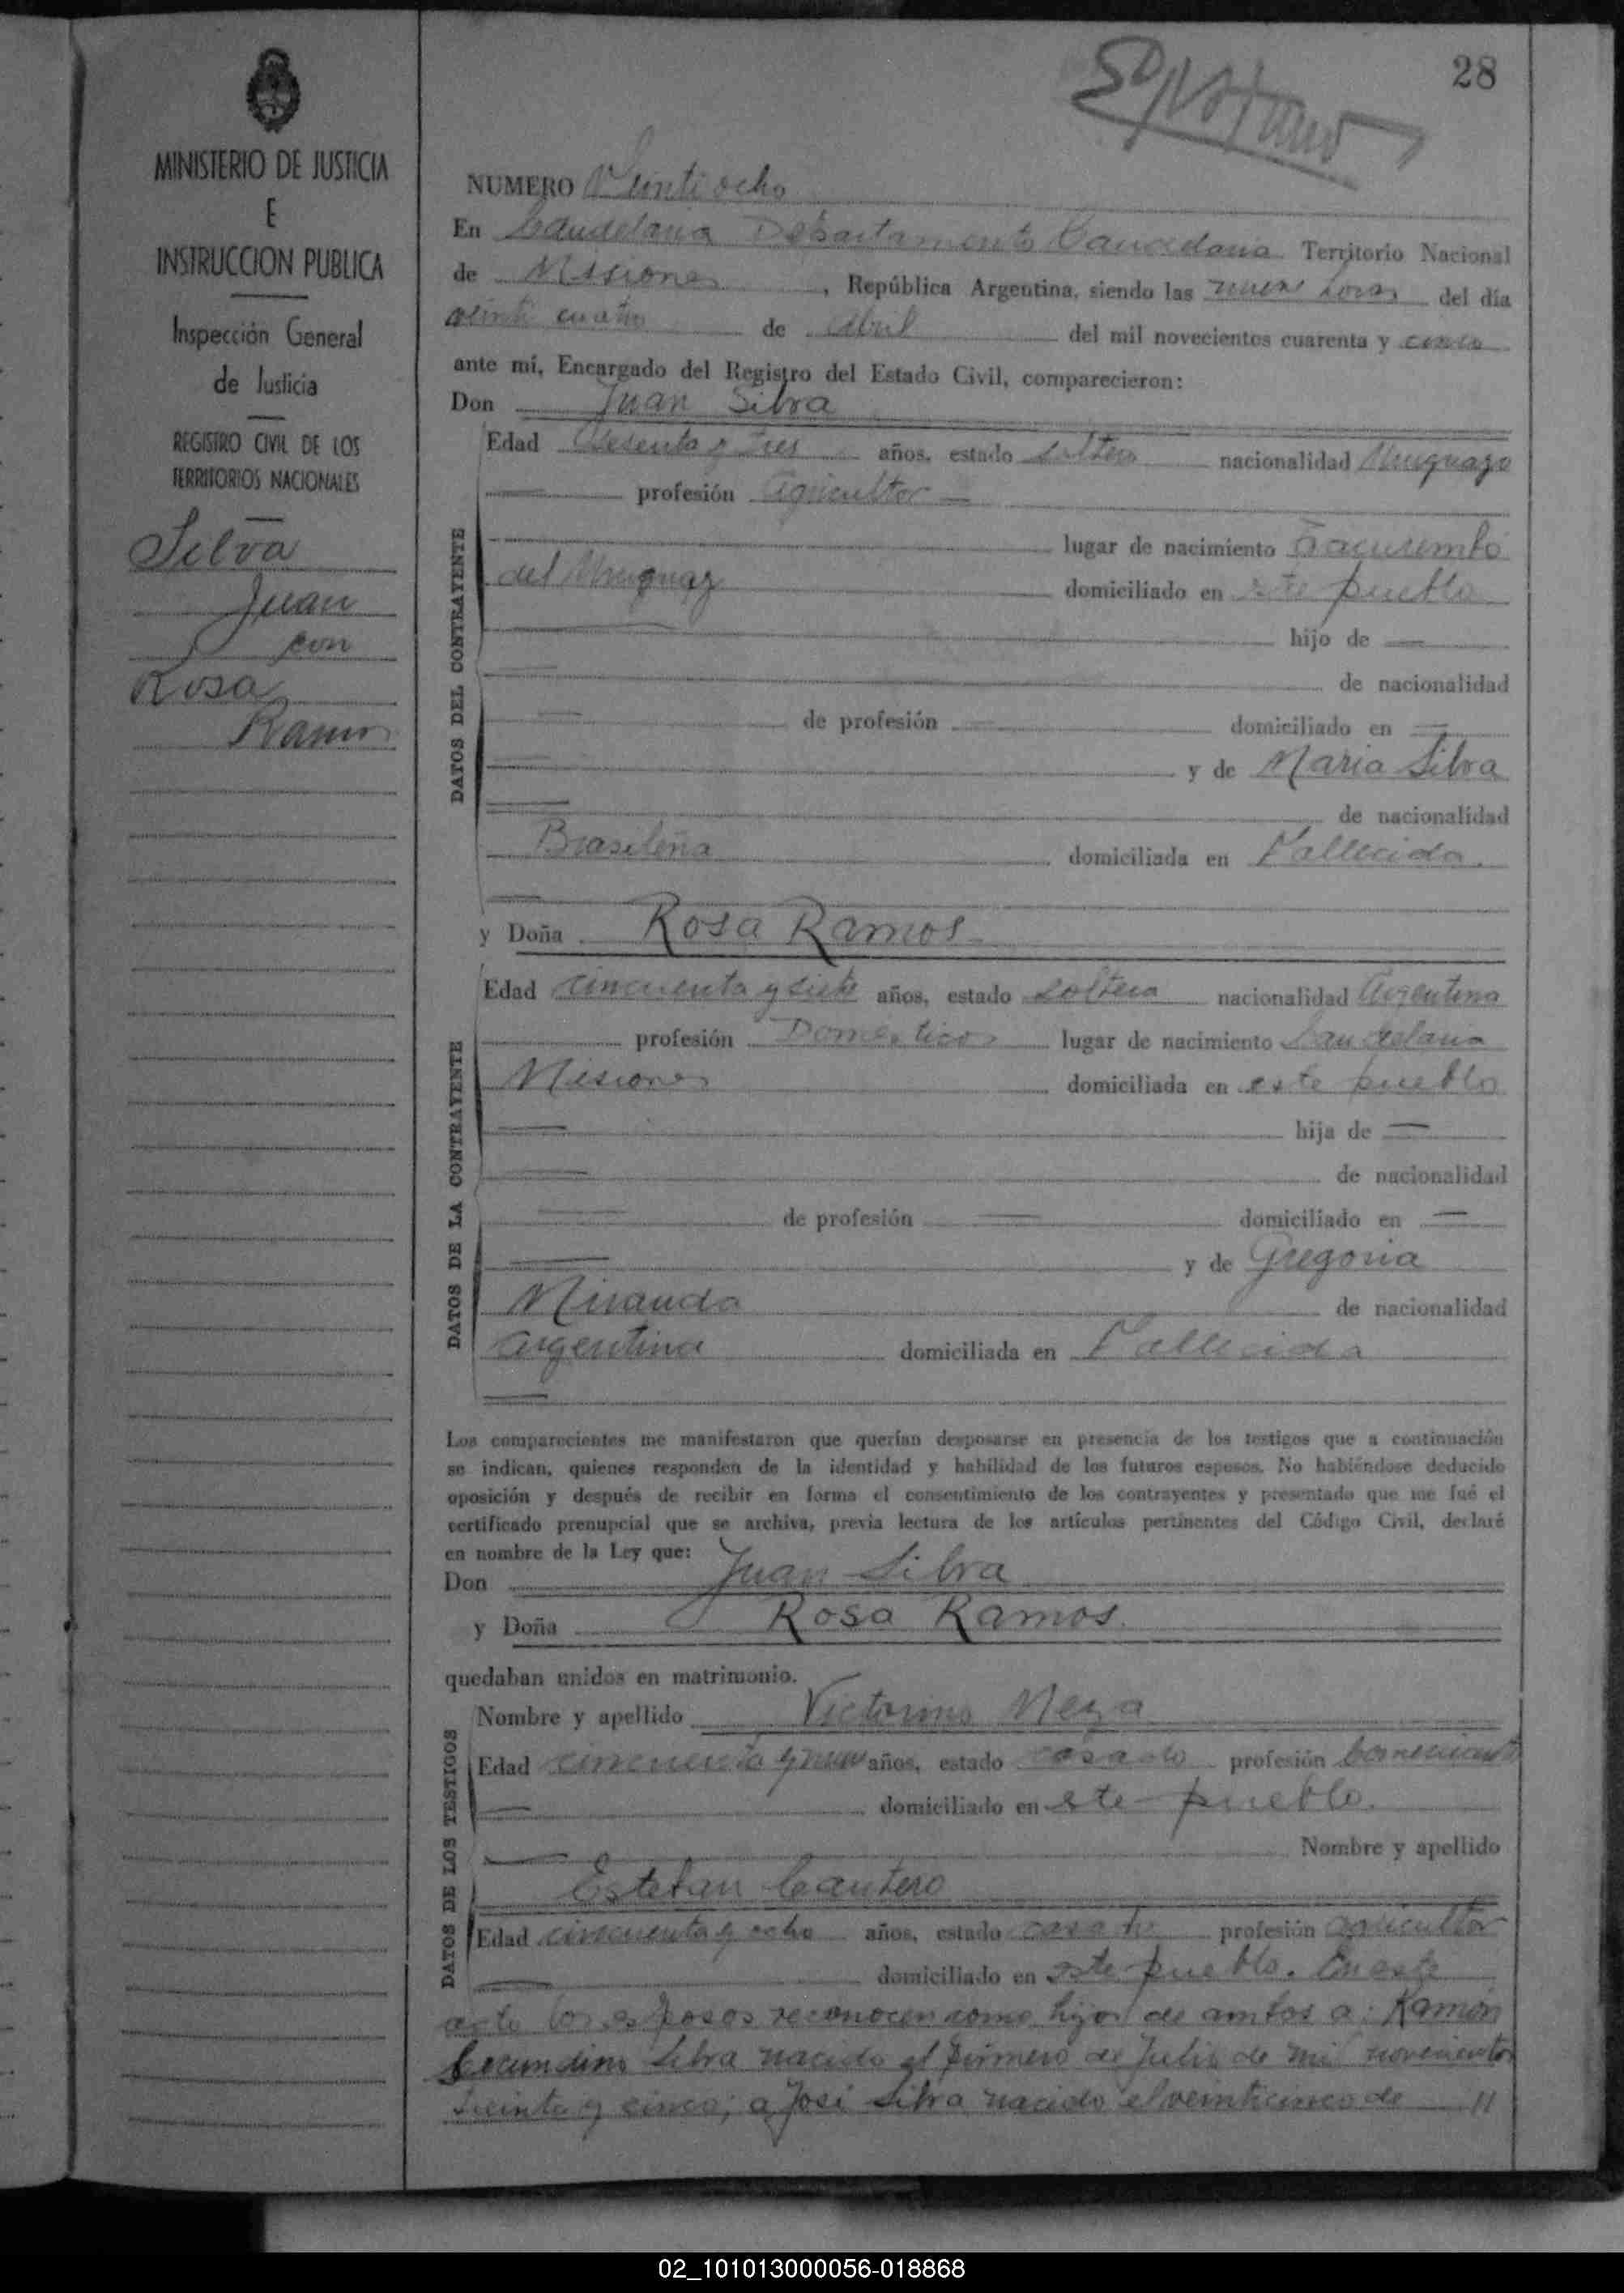 28
MINISTERIO DE JUSTICIA
E
INSTRUCCION PUBLICA
Inspección General
de Justicia
REGISTRO CIVIL DE LOS
TERRITORIOS NACIONALES
Silva
Juan
con
Rosa
Ramos
NUMERO Veinti ocho
En Candelaria Departamento Candelaria Territorio Nacional
de Misiones, República Argentina, siendo las nueve horas del día
veinti cuatro de Abril del mil novecientos cuarenta y cinco
ante mí, Encargado del Registro del Estado Civil, comparecieron:
Don Juan Silva
DATOS DEL CONTRAYENTE
Edad sesenta y tres años, estado soltero nacionalidad Uruguayo
profesión agricultor
lugar de nacimiento Tacuarembó
del Uruguay domiciliado en este pueblo
hijo de
de nacionalidad
de profesión domiciliado en
y de Maria Silva
de nacionalidad
Brasileña domiciliada en Fallecida.
y Doña Rosa Ramos
DATOS DE LA CONTRAYENTE
Edad cincuenta y siete años, estado soltera nacionalidad Argentina
profesión Domesticos lugar de nacimiento Candelaria
Misiones domiciliada en este pueblo
hija de
de nacionalidad
de profesión domiciliado en
y de Gregoria
Miranda de nacionalidad
argentina domiciliada en Fallecida
Los comparecientes me manifestaron que querían desposarse en presencia de los testigos que a continuación
se indican, quienes responden de la identidad y habilidad de los futuros esposos. No habiéndose deducido
oposición y después de recibir en forma el consentimiento de los contrayentes y presentado que me fué el
certificado prenupcial que se archiva, previa lectura de los artículos pertinentes del Código Civil, declaré
en nombre de la Ley que:
Don Juan Silva
y Doña Rosa Ramos.
quedaban unidos en matrimonio.
DATOS DE LOS TESTIGOS
Nombre y apellido Victorino Meza
Edad cincuenta y nueve años, estado casado profesión Comerciante
domiciliado en este pueblo.
Nombre y apellido
Esteban Cantero
Edad cincuenta y ocho años, estado casado profesión agricultor
domiciliado en este pueblo. En este
acto los esposos reconocen como hijos de ambos a: Ramón
Secundino Silva nacido el primero de Julio de mil novecientos
treinta y cinco; a José Silva nacido el veinticinco de
02_101013000056-018868